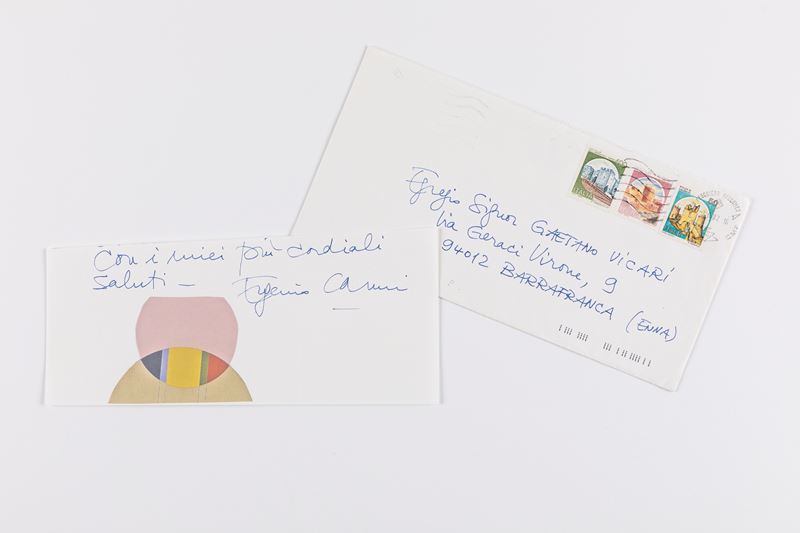 Con i miei più cordiali
Saluti — Eugenio Carmi
Egregio Signor GAETANO VICARI
Via Geraci Virone, 9
94012 BARRAFRANCA (ENNA)
ITALIA